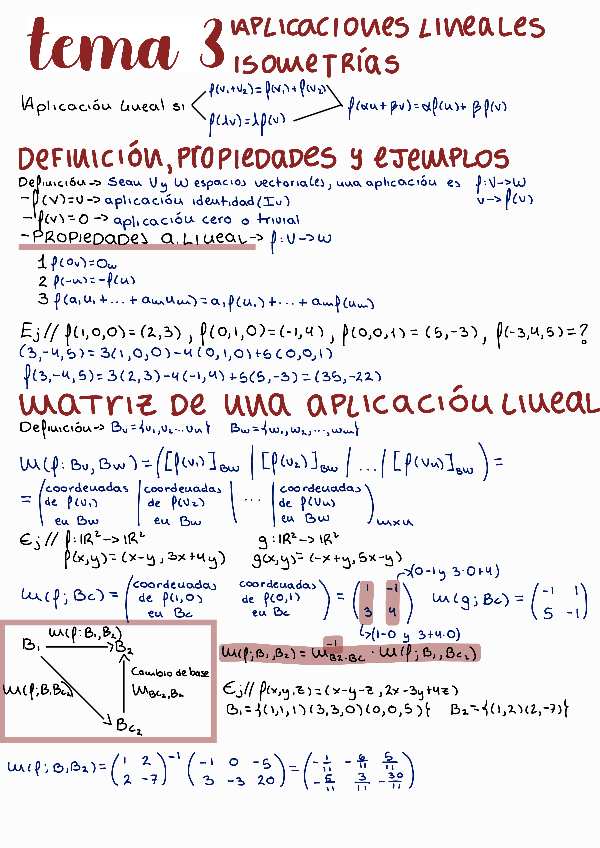 tema 3 APLICACIONES LINEALES
ISOMETRÍAS
Aplicación lineal si
f(v₁+v₂)=f(v₁)+f(v₂)
f(λv)=λf(v)
f(αu+βv)=αf(u)+βf(v)
DEFINICIÓN, PROPIEDADES Y EJEMPLOS
Definición-> Sean V y W espacios vectoriales, una aplicación es f:V->W
v->f(v)
-f(v)=v->aplicación identidad(Iv)
-f(v)=0->aplicación cero o trivial
-PROPIEDADES A. LINEAL-> f:V->W
1 f(0v)=0w
2 f(-u)=-f(u)
3 f(a₁u₁+...+amum)=a₁f(u₁)+...+amf(um)
Ej// f(1,0,0)=(2,3), f(0,1,0)=(-1,4), f(0,0,1)=(5,-3), f(-3,4,5)=?
(3,-4,5)=3(1,0,0)-4(0,1,0)+5(0,0,1)
f(3,-4,5)=3(2,3)-4(-1,4)+5(5,-3)=(35,-22)
MATRIZ DE UNA APLICACIÓN LINEAL
Definición-> Bv={v₁,v₂...vn} Bw={w₁,w₂,...,wm}
M(f:Bv,Bw)=([f(v₁)]Bw | [f(v₂)]Bw | ... | [f(vn)]Bw)=
=(coordenadas | coordenadas | ... | coordenadas
de f(v₁) de f(v₂) de f(vn)
en Bw en Bw en Bw)mxn
Ej// f:IR²->IR² g:IR²->IR²
f(x,y)=(x-y, 3x+4y) g(x,y)=(-x+y, 5x-y)
->(0-1 y 3·0+4)
M(f;Bc)=(coordenadas coordenadas
de f(1,0) de f(0,1)
en Bc en Bc)=(1 -1
3 4) M(g;Bc)=(-1 1
5 -1)
->(1-0 y 3+4·0)
M(f:B₁,B₂)
B₁ B₂
Cambio de base
M(f;B₁Bc₂) MBc₂,B₂
Bc₂
M(f;B₁,B₂)=M⁻¹B₂·Bc·M(f;B₁,Bc₂)
Ej// f(x,y,z)=(x-y-z, 2x-3y+4z)
B₁={(1,1,1)(3,3,0)(0,0,5)} B₂={(1,2)(2,-7)}
M(f;B₁B₂)=(1 2
2 -7)⁻¹(-1 0 -5
3 -3 20)=(-1/11 -6/11 5/11
-5/11 3/11 -30/11)